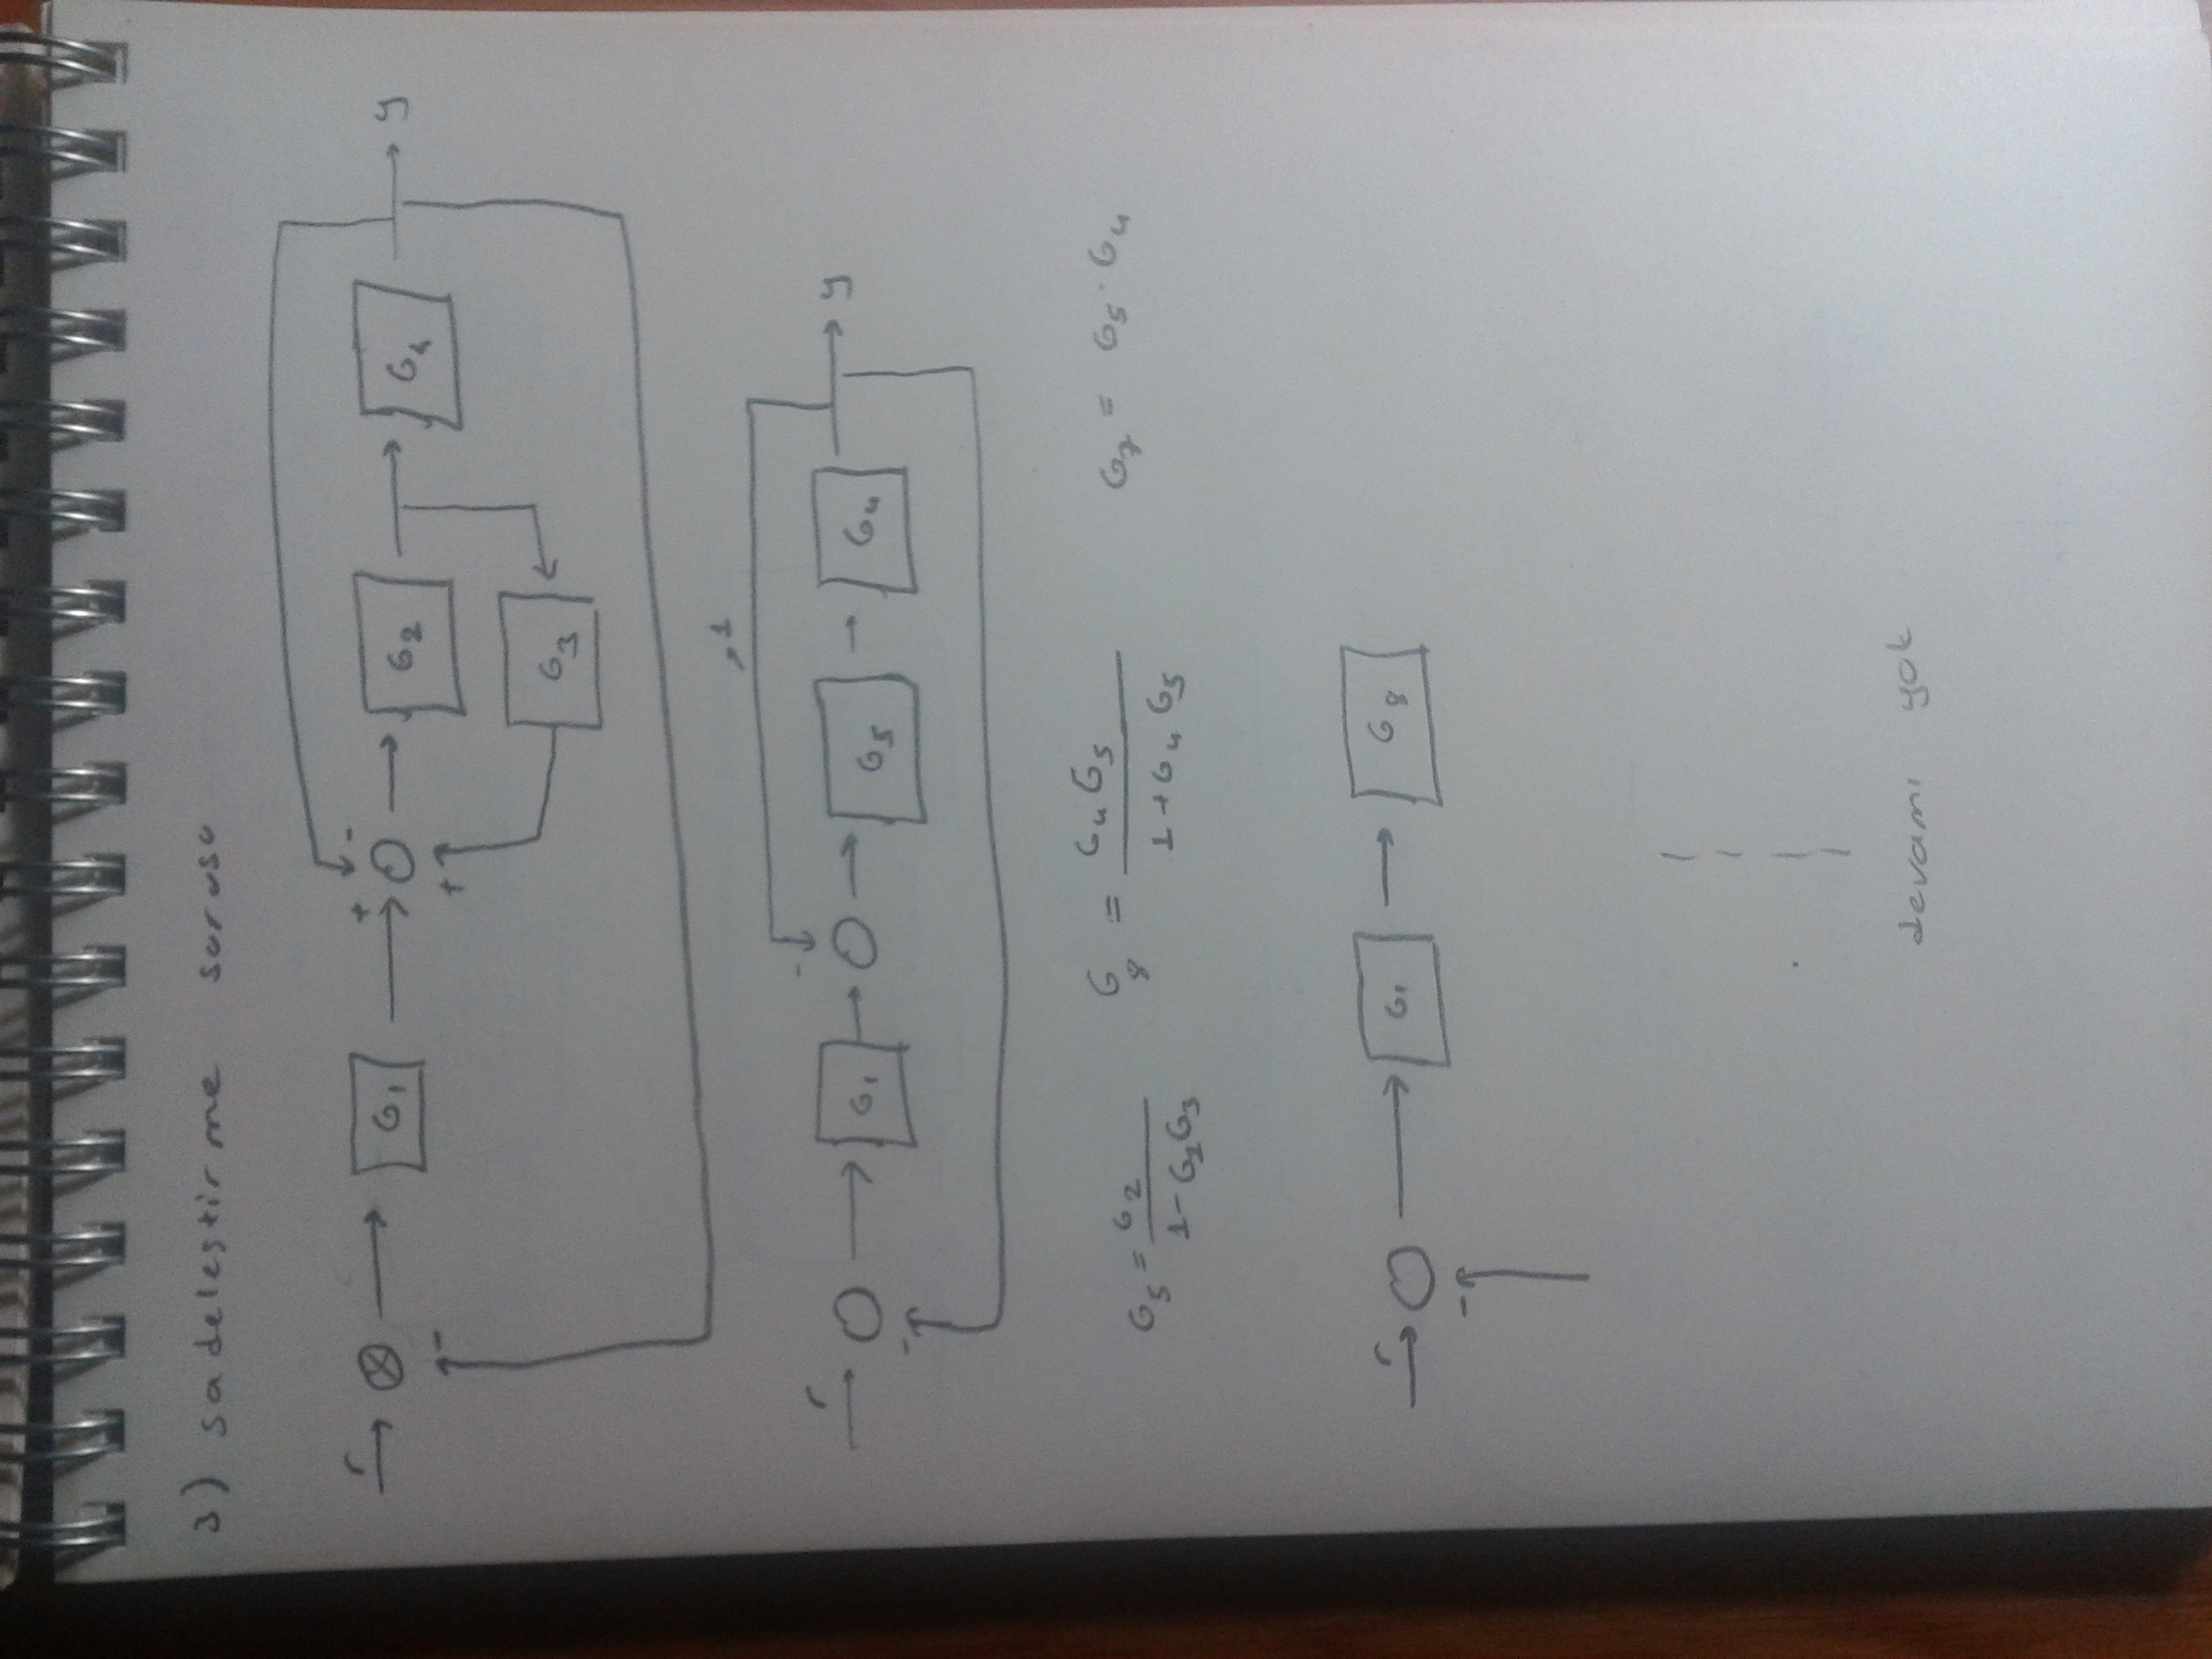 3) sadeleştirme sorusu
-
r G1 + G2 G4 y
+
- G3
1
r - G1 G5 G4 y
-
G5 = G2 / 1 - G2G3 G8 = G4 G5 / 1 + G4 G5 G7 = G5 · G4
r G1 G8
-
devamı yok